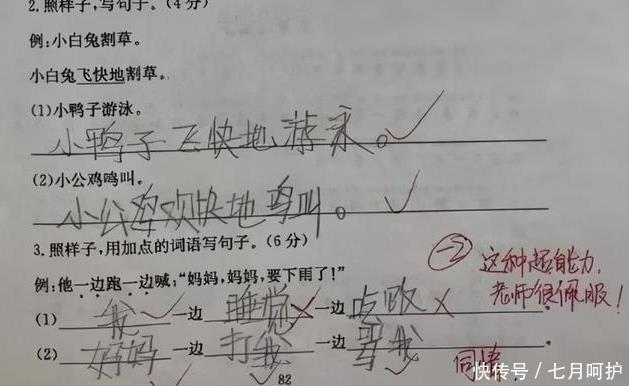 2.照样子,写句子。(4分)
例:小白兔割草。
小白兔飞快地割草。
(1)小鸭子游泳。
小鸭子飞快地游泳。
(2)小公鸡鸣叫。
小公鸡欢快地鸣叫。
3.照样子,用加点的词语写句子。(6分)
-2 这种超能力,
老师很佩服!
例:他一边跑一边喊:“妈妈,妈妈,要下雨了!”
(1)我一边睡觉一边吃饭。
(2)妈妈一边打我一边骂我
同情
82
快传号/七月呵护